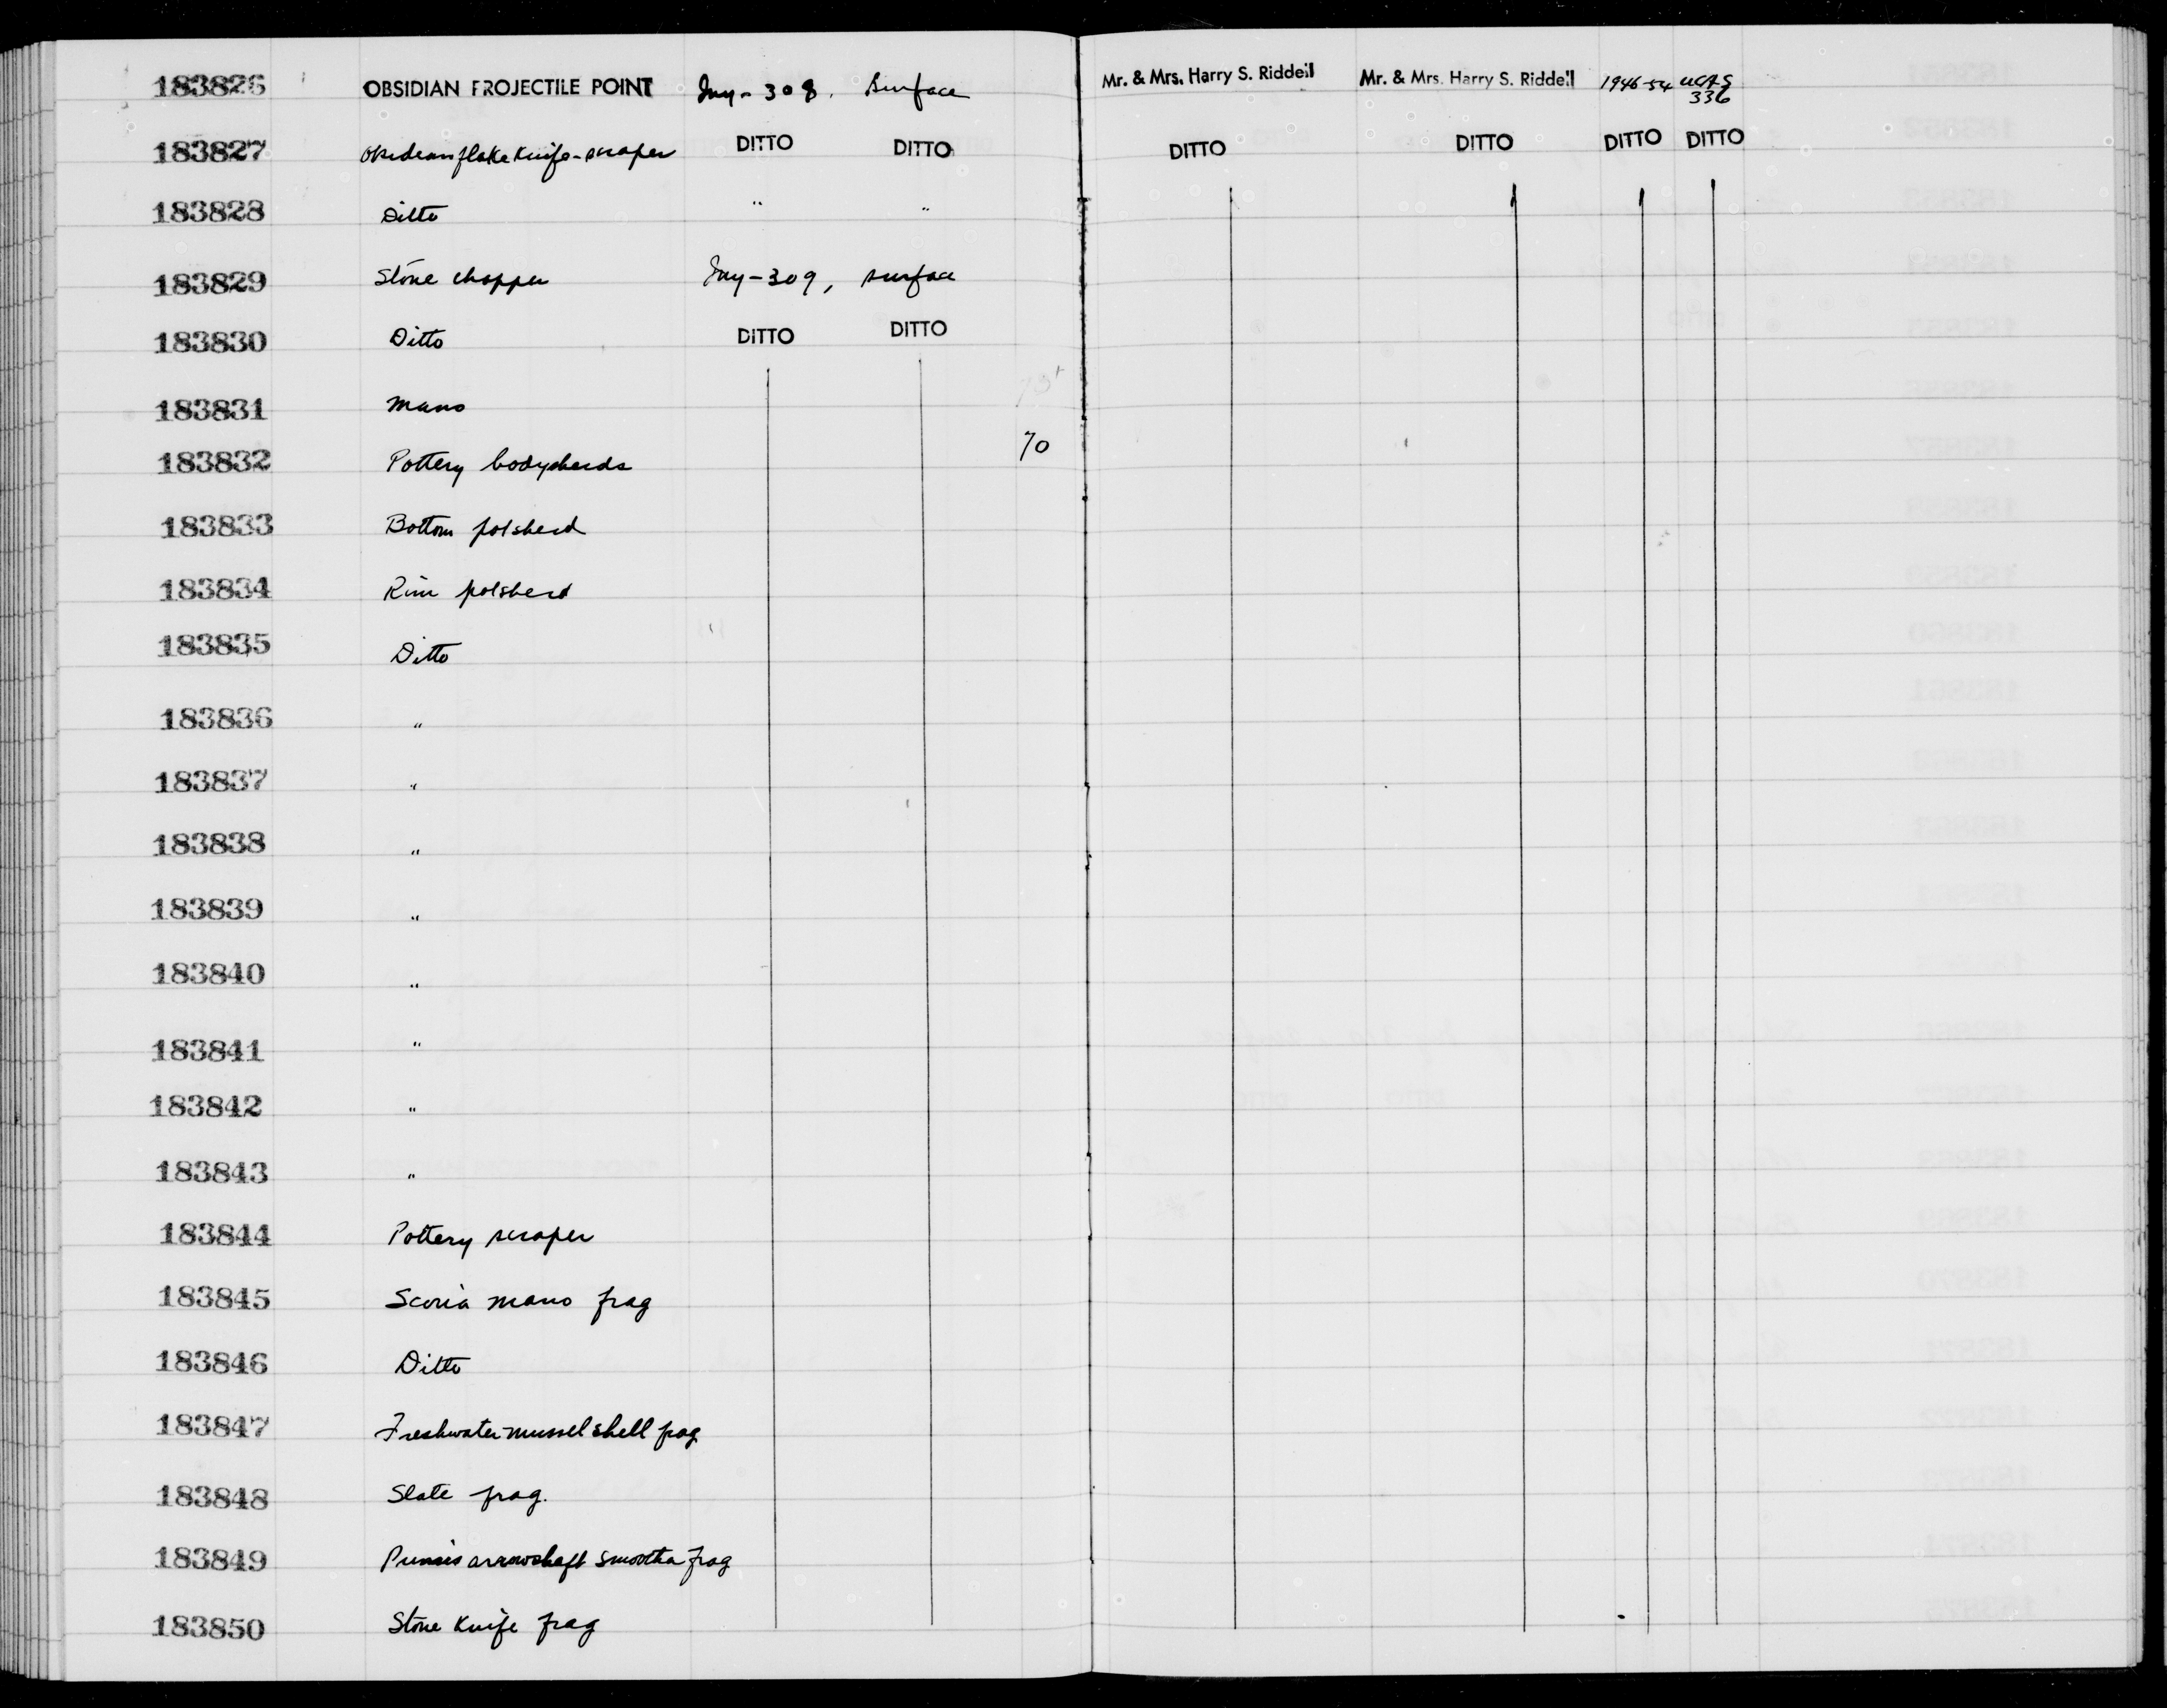 183826 OBSIDIAN PROJECTILE POINT Iny-308. Surface Mr. & Mrs. Harry S. Riddell Mr. & Mrs. Harry S. Riddell 1946-54 UCAS 336
183827 Obsidian flake knife-scraper DITTO DITTO DITTO DITTO DITTO DITTO
183828 Ditto " "
183829 Stone chopper Iny-309, surface
183830 Ditto DITTO DITTO
183831 Mano
183832 Pottery bodysherds 70
183833 Bottom potsherd
183834 Rim potsherd
183835 Ditto
183836 "
183837 "
183838 "
183839 "
183840 "
183841 "
183842 "
183843 "
183844 Pottery scraper
183845 Scoria mano frag
183846 Ditto
183847 Freshwater mussel shell frag
183848 Slate frag.
183849 Pumice arrowshaft smoother frag
183850 Stone knife frag